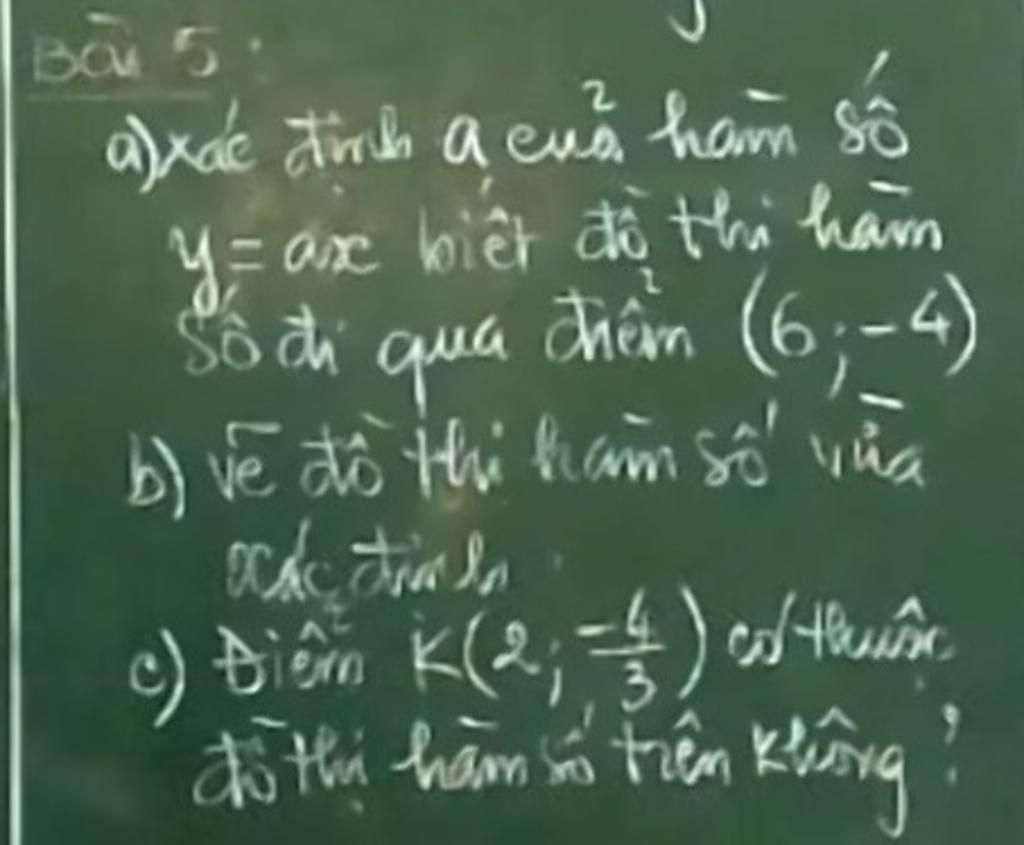 Bài 5:
a) xác định a của hàm số
y = ax biết đồ thị hàm
số đi qua điểm (6; -4)
b) vẽ đồ thị hàm số vừa
xác định.
c) Điểm K(2; -4/3) có thuộc
đồ thị hàm số trên không?